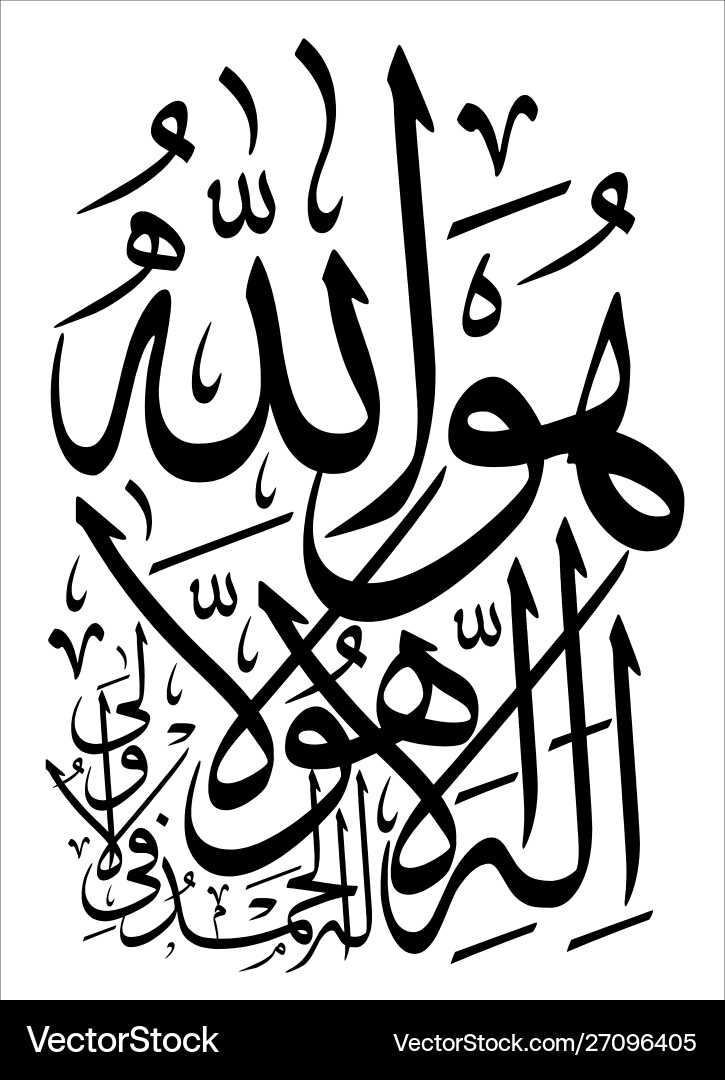 هُوَ اللّٰهُ
لَا إِلٰهَ إِلَّا هُوَ
لَهُ الْحَمْدُ فِي الْأُولَى
VectorStock
VectorStock.com/27096405